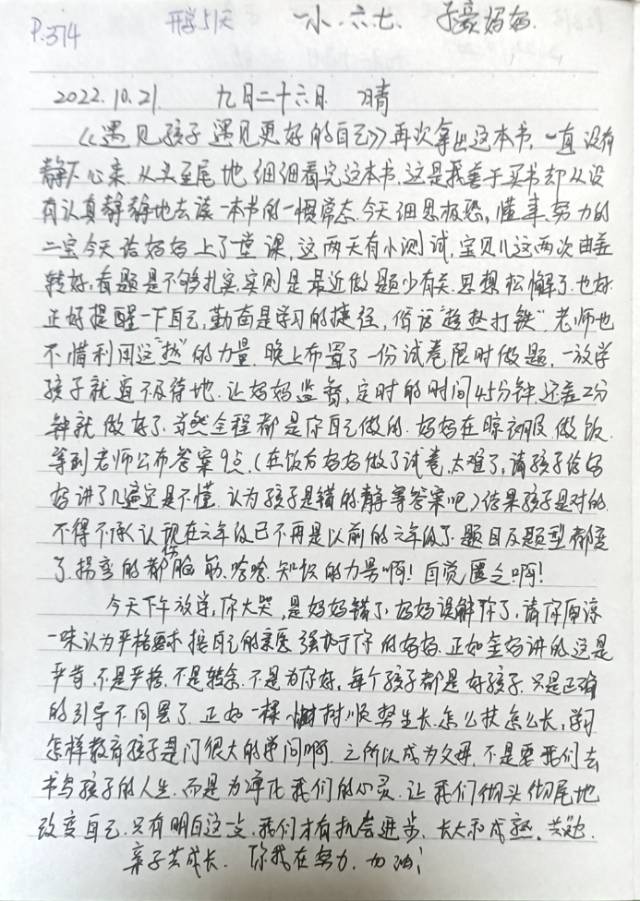 P.374 开学51天 一小.六七. 子豪妈妈.
2022.10.21. 九月二十六日 晴
《遇见孩子 遇见更好的自己》再次拿出这本书,一直没有
静下心来.从头至尾地细细看完这本书.这是我善于买书却从没
有认真静静地去读一本书的一惯常态.今天细思极恐,懂事努力的
二宝今天给妈妈上了一堂课,这两天有小测试,宝贝儿这两次由差
转好,看题是不够扎实实则是最近做题少有关.思想松懈了.也好
正好提醒一下自己,勤奋是学习的捷径,俗话"趁热打铁"老师也
不惜利用这"热"的力量.晚上布置了一份试卷限时做题.一放学
孩子就迫不及待地.让妈妈监督,定时的时间45分钟还差2分
钟就做好了.当然全程都是你自己做的.妈妈在晾衣服做饭.
等到老师公布答案9点.(在饭后妈妈做了试卷,太难了,请孩子给妈
妈讲了几遍还是不懂.认为孩子是错的静等答案吧)结果孩子是对的.
不得不承认现在六年级已不再是以前的六年级了.题目及题型都变
了.拐弯的都 脑筋.哈哈.知识的力量啊!自觉匮乏啊!
今天下午放学,你大哭,是妈妈错了,妈妈误解你了,请你原谅
一味认为严格要求 把自己的 强加于你的妈妈.正如 妈讲的这是
严苛.不是严格.不是 .不是为你好,每个孩子都是好孩子.只是正确
的引导不同罢了.正如一棵小树树顺势生长.怎么扶怎么长,学习
怎样教育孩子是门很大的学问啊.之所以成为父母.不是要我们去
书写孩子的人生.而是为净化我们的心灵.让我们彻头彻尾地
改变自己.只有明白这一点,我们才有机会进步、长大和成熟.共勉.
亲子共成长. 你我在努力.加油!